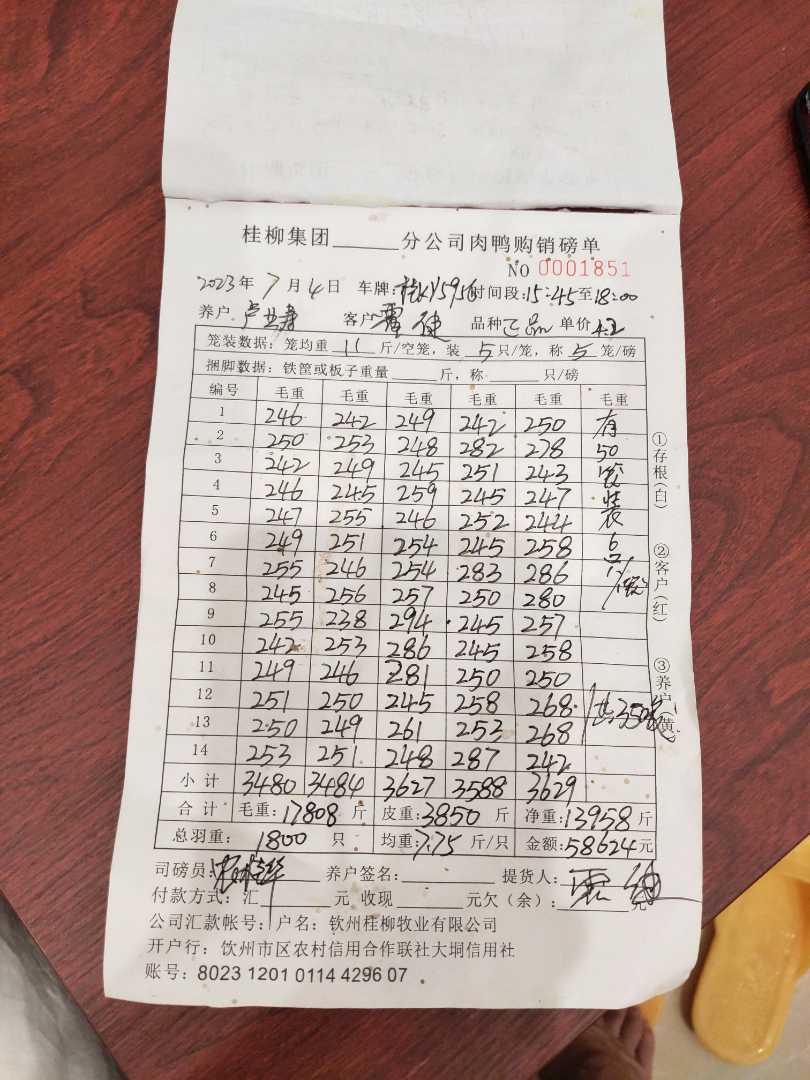 桂柳集团______分公司肉鸭购销磅单
NO 0001851
2023年 7月4日 车牌: 时间段:15:45至18:00
养户 客户 品种 单价4.2
笼装数据: 笼均重 11 斤/空笼, 装 5 只/笼, 称 5 笼/磅
捆脚数据: 铁筐或板子重量______斤, 称______只/磅
编号 毛重 毛重 毛重 毛重 毛重 毛重
1 246 242 249 242 250 有
2 250 253 248 282 278 50
3 242 249 245 251 243
4 246 245 259 245 247 装
5 247 255 246 252 244
6 249 251 254 245 258 6
7 255 246 254 283 286 只
8 245 256 257 250 280
9 255 238 294 245 257
10 242 253 286 245 258
11 249 246 281 250 250
12 251 250 245 258 268
13 250 249 261 253 268
14 253 251 248 287 242
共350
小计 3480 3484 3627 3588 3629
合计 毛重:17808斤 皮重:3850斤 净重:13958斤
总羽重: 1800 只 均重:7.75斤/只 金额:58624元
司磅员: 养户签名:______ 提货人:
付款方式: 汇______元 收现______元欠(余):______元
公司汇款帐号: 户名: 钦州桂柳牧业有限公司
开户行: 饮州市区农村信用合作联社大垌信用社
账号: 8023 1201 0114 4296 07
①存根(白)
②客户(红)
③养户(黄)